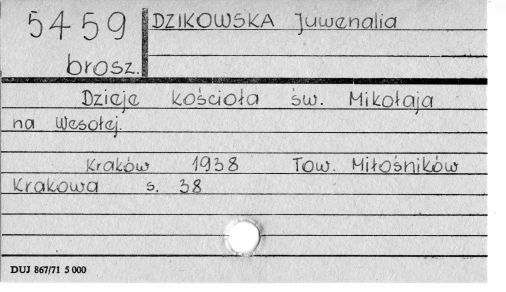 5459 DZIKOWSKA Juwenalia
brosz.
Dzieje kościoła św. Mikołaja
na Wesołej.
Kraków 1938 Tow. Miłośników
Krakowa s. 38
DUJ 867/71 5 000